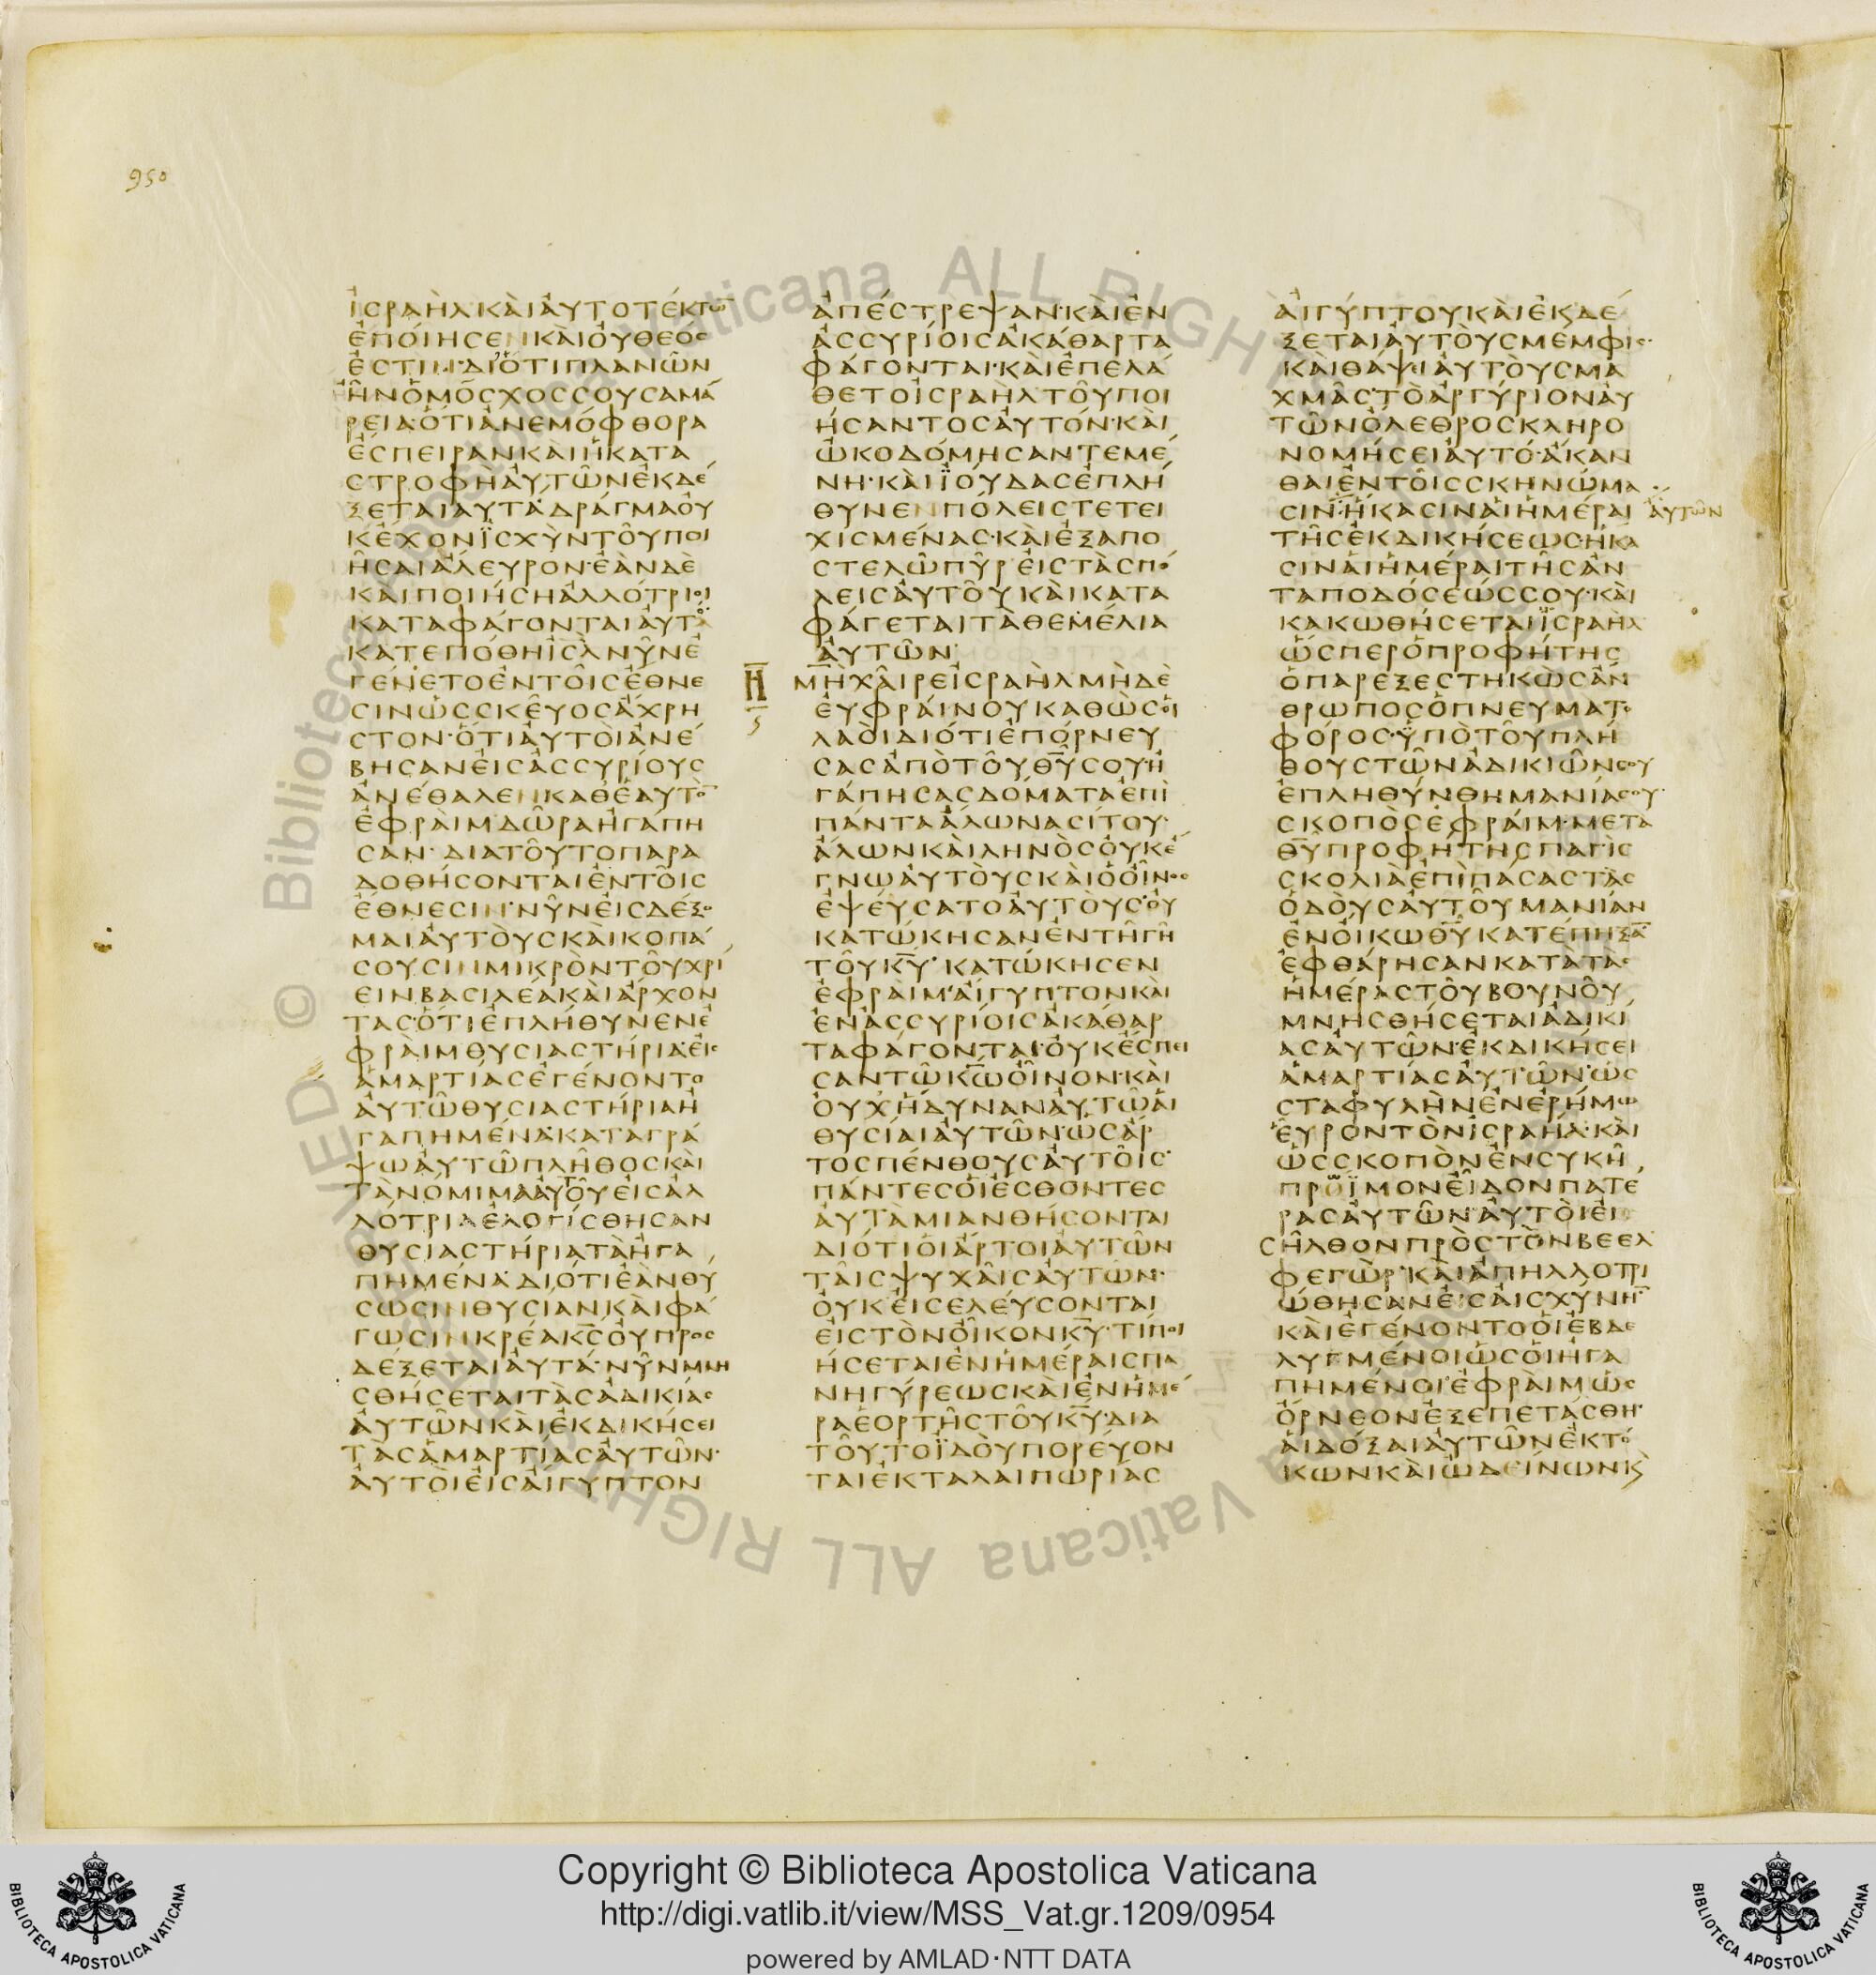 950
ΙΣΡΑΗΛ·ΚΑΙΑΥΤΟΤΕΚΤΩ̅
ΕΠΟΙΗΣΕΝΚΑΙΟΥΘΕΟΣ
ΕΣΤΙΝ·ΔΙΟΤΙΠΛΑΝΩΝ
ΗΝΟΜΟΣΧΟΣΣΟΥΣΑΜΑ
ΡΕΙΑ·ΟΤΙΑΝΕΜΟΦΘΟΡΑ
ΕΣΠΕΙΡΑΝΚΑΙΗΚΑΤΑ
ΣΤΡΟΦΗΑΥΤΩΝΕΚΔΕ
ΞΕΤΑΙΑΥΤΑ·ΔΡΑΓΜΑΟΥ
ΚΕΧΟΝΪΣΧΥΝΤΟΥΠΟΙ
ΗΣΑΙΑΛΕΥΡΟΝ·ΕΑΝΔΕ
ΚΑΙΠΟΙΗΣΗΑΛΛΟΤΡΙΟΙ
ΚΑΤΑΦΑΓΟΝΤΑΙΑΥΤΟ
ΚΑΤΕΠΟΘΗΙΣΛΝΥΝΕ
ΓΕΝΕΤΟΕΝΤΟΙΣΕΘΝΕ
ΣΙΝΩΣΣΚΕΥΟΣΑΧΡΗ
ΣΤΟΝ·ΟΤΙΑΥΤΟΙΑΝΕ
ΒΗΣΑΝΕΙΣΑΣΣΥΡΙΟΥΣ
ΑΝΕΘΑΛΕΝΚΑΘΕΑΥΤΟ̅
ΕΦΡΑΙΜ·ΔΩΡΑΗΓΑΠΗ
ΣΑΝ·ΔΙΑΤΟΥΤΟΠΑΡΑ
ΔΟΘΗΣΟΝΤΑΙΕΝΤΟΙΣ
ΕΘΝΕΣΙΝ·ΝΥΝΕΙΣΔΕΞΟ
ΜΑΙΑΥΤΟΥΣΚΑΙΚΟΠΑ
ΣΟΥΣΙΝΜΙΚΡΟΝΤΟΥΧΡΙ
ΕΙΝΒΑΣΙΛΕΑΚΑΙΑΡΧΟΝ
ΤΑΣ·ΟΤΙΕΠΛΗΘΥΝΕΝΕ
ΦΡΑΙΜΘΥΣΙΑΣΤΗΡΙΑ·ΕΙΣ
ΑΜΑΡΤΙΑΣΕΓΕΝΟΝΤΟ
ΑΥΤΩΘΥΣΙΑΣΤΗΡΙΑΗ
ΓΑΠΗΜΕΝΑ·ΚΑΤΑΓΡΑ
ΨΩΑΥΤΩΠΛΗΘΟΣΚΑΙ
ΤΑΝΟΜΙΜΑΑΥΤΟΥΕΙΣΑΛ
ΛΟΤΡΙΑΕΛΟΓΙΣΘΗΣΑΝ
ΘΥΣΙΑΣΤΗΡΙΑΤΑΗΓΑ
ΠΗΜΕΝΑ·ΔΙΟΤΙΕΑΝΘΥ
ΣΩΣΙΝΘΥΣΙΑΝΚΑΙΦΑ
ΓΩΣΙΝΚΡΕΑΚ̅Σ̅ΟΥΠΡΟΣ
ΔΕΞΕΤΑΙΑΥΤΑ·ΝΥΝΜΝΗ
ΣΘΗΣΕΤΑΙΤΑΣΑΔΙΚΙΑΣ
ΑΥΤΩΝΚΑΙΕΚΔΙΚΗΣΕΙ
ΤΑΣΑΜΑΡΤΙΑΣΑΥΤΩΝ·
ΑΥΤΟΙΕΙΣΑΙΓΥΠΤΟΝ
ΑΠΕΣΤΡΕΨΑΝ·ΚΑΙΕΝ
ΑΣΣΥΡΙΟΙΣΑΚΑΘΑΡΤΑ
ΦΑΓΟΝΤΑΙ·ΚΑΙΕΠΕΛΑ
ΘΕΤΟΙΣΡΑΗΛΤΟΥΠΟΙ
ΗΣΑΝΤΟΣΑΥΤΟΝ·ΚΑΙ
ΩΚΟΔΟΜΗΣΑΝΤΕΜΕ
ΝΗ·ΚΑΙΪΟΥΔΑΣΕΠΛΗ
ΘΥΝΕΝΠΟΛΕΙΣΤΕΤΕΙ
ΧΙΣΜΕΝΑΣ·ΚΑΙΕΞΑΠΟ
ΣΤΕΛΩΠΥΡΕΙΣΤΑΣΠΟ
ΛΕΙΣΑΥΤΟΥΚΑΙΚΑΤΑ
ΦΑΓΕΤΑΙΤΑΘΕΜΕΛΙΑ
ΑΥΤΩΝ
Η̅ ΜΗΧΑΙΡΕΙΣΡΑΗΛΜΗΔΕ
ΕΥΦΡΑΙΝΟΥΚΑΘΩΣΟΙ
ΛΑΟΙΔΙΟΤΙΕΠΟΡΝΕΥ
ΣΑΣΑΠΟΤΟΥΘ̅Υ̅ΣΟΥ·Η
ΓΑΠΗΣΑΣΔΟΜΑΤΑΕΠΙ
ΠΑΝΤΑΑΛΩΝΑΣΙΤΟΥ·
ΑΛΩΝΚΑΙΛΗΝΟΣΟΥΚΕ
ΓΝΩΑΥΤΟΥΣΚΑΙΟΟΙΝΟΣ
ΕΨΕΥΣΑΤΟΑΥΤΟΥΣ·ΟΥ
ΚΑΤΩΚΗΣΑΝΕΝΤΗΓΗ
ΤΟΥΚ̅Υ̅·ΚΑΤΩΚΗΣΕΝ
ΕΦΡΑΙΜ·ΑΙΓΥΠΤΟΝΚΑΙ
ΕΝΑΣΣΥΡΙΟΙΣΑΚΑΘΑΡ
ΤΑΦΑΓΟΝΤΑΙ·ΟΥΚΕΣΠΕΙ
ΣΑΝΤΩΚ̅Ω̅ΟΙΝΟΝ·ΚΑΙ
ΟΥΧΗΔΥΝΑΝΑΥΤΩΑΙ
ΘΥΣΙΑΙΑΥΤΩΝ·ΩΣΑΡ
ΤΟΣΠΕΝΘΟΥΣΑΥΤΟΙΣ·
ΠΑΝΤΕΣΟΙΕΣΘΟΝΤΕΣ
ΑΥΤΑΜΙΑΝΘΗΣΟΝΤΑΙ
ΔΙΟΤΙΟΙΑΡΤΟΙΑΥΤΩΝ
ΤΑΙΣΨΥΧΑΙΣΑΥΤΩΝ·
ΟΥΚΕΙΣΕΛΕΥΣΟΝΤΑΙ
ΕΙΣΤΟΝΟΙΚΟΝΚ̅Υ̅·ΤΙΠΟΙ
ΗΣΕΤΑΙΕΝΗΜΕΡΑΙΣΠΑ
ΝΗΓΥΡΕΩΣΚΑΙΕΝΗΜΕ
ΡΑΕΟΡΤΗΣΤΟΥΚ̅Υ̅·ΔΙΑ
ΤΟΥΤΟΪΔΟΥΠΟΡΕΥΟΝ
ΤΑΙΕΚΤΑΛΑΙΠΩΡΙΑΣ
ΑΙΓΥΠΤΟΥΚΑΙΕΚΔΕ
ΞΕΤΑΙΑΥΤΟΥΣΜΕΜΦΙΣ·
ΚΑΙΘΑΨΕΙΑΥΤΟΥΣΜΑ
ΧΜΑΣ·ΤΟΑΡΓΥΡΙΟΝΑΥ
ΤΩΝΟΛΕΘΡΟΣΚΛΗΡΟ
ΝΟΜΗΣΕΙΑΥΤΟ·ΑΚΑΝ
ΘΑΙΕΝΤΟΙΣΣΚΗΝΩΜΑ
ΣΙΝ·ΗΚΑΣΙΝΑΙΗΜΕΡΑΙ ΑΥΤΩΝ
ΤΗΣΕΚΔΙΚΗΣΕΩΣ·ΗΚΑ
ΣΙΝΑΙΗΜΕΡΑΙΤΗΣΑΝ
ΤΑΠΟΔΟΣΕΩΣΣΟΥ·ΚΑΙ
ΚΑΚΩΘΗΣΕΤΑΙΪΣΡΑΗΛ
ΩΣΠΕΡΟΠΡΟΦΗΤΗΣ
ΟΠΑΡΕΞΕΣΤΗΚΩΣΑΝ
ΘΡΩΠΟΣΟΠΝΕΥΜΑΤΟ
ΦΟΡΟΣ·ΫΠΟΤΟΥΠΛΗ
ΘΟΥΣΤΩΝΑΔΙΚΙΩΝΣΟΥ
ΕΠΛΗΘΥΝΘΗΜΑΝΙΑΣΟΥ·
ΣΚΟΠΟΣΕΦΡΑΙΜ·ΜΕΤΑ
Θ̅Υ̅ΠΡΟΦΗΤΗΣΠΑΓΙΣ
ΣΚΟΛΙΑΕΠΙΠΑΣΑΣΤΑΣ
ΟΔΟΥΣΑΥΤΟΥΜΑΝΙΑΝ
ΕΝΟΙΚΩΘ̅Υ̅ΚΑΤΕΠΗΞΑ̅
ΕΦΘΑΡΗΣΑΝΚΑΤΑΤΑΣ
ΗΜΕΡΑΣΤΟΥΒΟΥΝΟΥ
ΜΝΗΣΘΗΣΕΤΑΙΑΔΙΚΙ
ΑΣΑΥΤΩΝ·ΕΚΔΙΚΗΣΕΙ
ΑΜΑΡΤΙΑΣΑΥΤΩΝ·ΩΣ
ΣΤΑΦΥΛΗΝΕΝΕΡΗΜΩ
ΕΥΡΟΝΤΟΝΪΣΡΑΗΛ·ΚΑΙ
ΩΣΣΚΟΠΟΝΕΝΣΥΚΗ
ΠΡΟΪΜΟΝΕΙΔΟΝΠΑΤΕ
ΡΑΣΑΥΤΩΝ·ΑΥΤΟΙΕΙ
ΣΗΛΘΟΝΠΡΟΣΤΟΝΒΕΕΛ
ΦΕΓΩΡ·ΚΑΙΑΠΗΛΛΟΤΡΙ
ΩΘΗΣΑΝΕΙΣΑΙΣΧΥΝΗ̅
ΚΑΙΕΓΕΝΟΝΤΟΟΙΕΒΔΕ
ΛΥΓΜΕΝΟΙΩΣΟΙΗΓΑ
ΠΗΜΕΝΟΙ·ΕΦΡΑΙΜΩΣ
ΟΡΝΕΟΝΕΞΕΠΕΤΑΣΘΗ·
ΑΙΔΟΞΑΙΑΥΤΩΝΕΚΤΟ
ΚΩΝΚΑΙΩΔΕΙΝΩΝΚ
Copyright © Biblioteca Apostolica Vaticana
http://digi.vatlib.it/view/MSS_Vat.gr.1209/0954
powered by AMLAD·NTT DATA
BIBLIOTECA APOSTOLICA VATICANA
BIBLIOTECA APOSTOLICA VATICANA